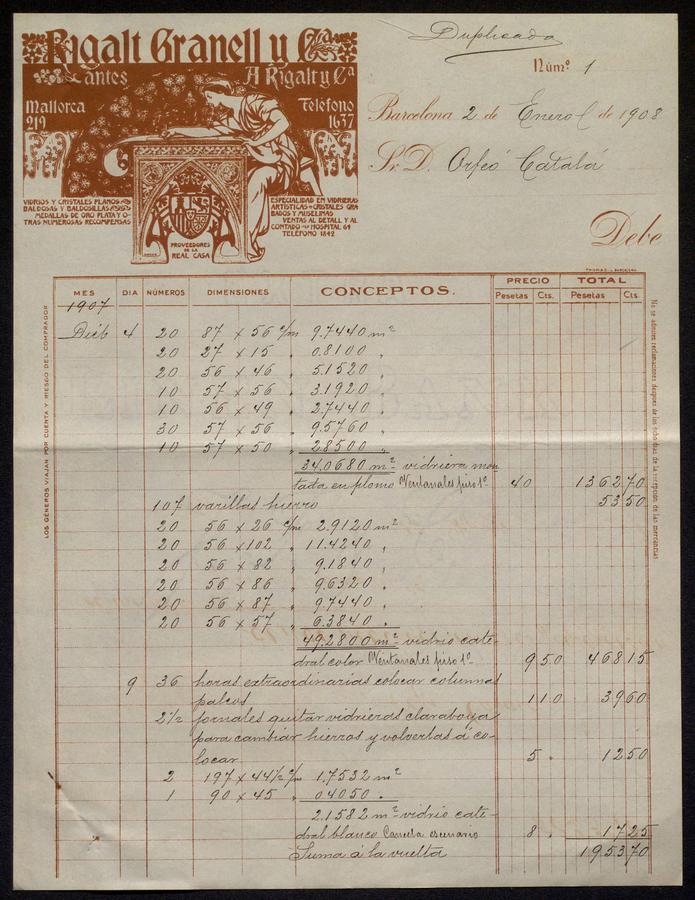 Rigalt Granell y Cª
antes A Rigalt y Cª
Mallorca 219
Teléfono 1637
VIDRIOS Y CRISTALES PLANOS
BALDOSAS Y BALDOSILLAS
MEDALLAS DE ORO PLATA Y O-
TRAS NUMEROSAS RECOMPENSAS
PROVEEDORES
DE LA
REAL CASA
ESPECIALIDAD EN VIDRIERAS
ARTISTICAS CRISTALES GRA
BADOS Y MUSELINAS
VENTAS AL DETALL Y AL
CONTADO HOSPITAL 64
TELEFONO 1842
Duplicado
Númº 1
Barcelona 2 de Enero de 1908
Sr. D. Orfeó Catalá
Debe
THOMAS - BARCELONA
MES DIA NÚMEROS DIMENSIONES CONCEPTOS. PRECIO TOTAL
Pesetas Cts. Pesetas Cts.
1907
Dicb 4 20 87 x 56 c/m 9.7440 m²
20 27 x 15 " 0.8100 "
20 56 x 46 " 5.1520
10 57 x 56 " 3.1920
10 56 x 49 " 2.7440
30 57 x 56 " 9.5760
10 57 x 50 " 2.8500 "
34.0680 m² vidriera mon
tada en plomo Ventanales piso 1º 40 1362 70
107 varillas hierro 53 50
20 56 x 26 c/m 2.9120 m²
20 56 x 102 " 11.4240 "
20 56 x 82 " 9.1840 "
20 56 x 86 " 9.6320 "
20 56 x 87 " 9.7440 "
20 56 x 57 " 6.3840 "
49.2800 m² vidrio cate-
dral color Ventanales piso 1º 9 50 468 15
9 36 horas extraordinarias colocar columnas
palcos 1 10 39 60
2 1/2 jornales quitar vidrieras claraboya
para cambiar hierros y volverlas á co-
locar 5 " 12 50
2 197 x 44 1/2 c/m 1.7532 m²
1 90 x 45 " 0.4050 "
2.1582 m² vidrio cate-
dral blanco Cancela escenario 8 " 17 25
Suma á la vuelta 1953 70
LOS GÉNEROS VIAJAN POR CUENTA Y RIESGO DEL COMPRADOR
No se admiten reclamaciones despues de los ocho dias de la recepcion de las mercancias